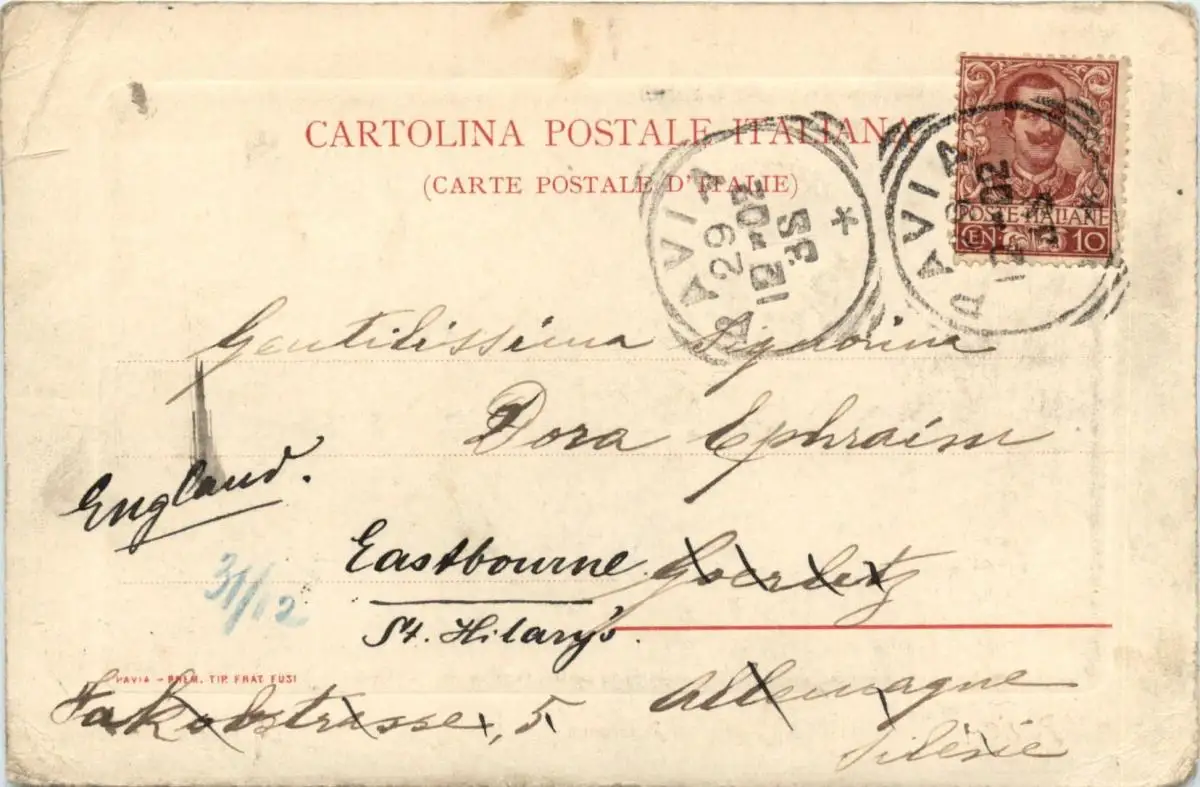 CARTOLINA POSTALE ITALIANA
(CARTE POSTALE D'ITALIE)
POSTE ITALIANE
CEN. 10
PAVIA
29
12-02
3S
*
PAVIA
12-02
*
Gentilissima Signorina
Dora Ephraim
England.
Eastbourne Goerlitz
31/12
St. Hilary's.
PAVIA - PREM. TIP. FRAT. FUSI
Jakobstrasse, 5 Allemagne
Silésie